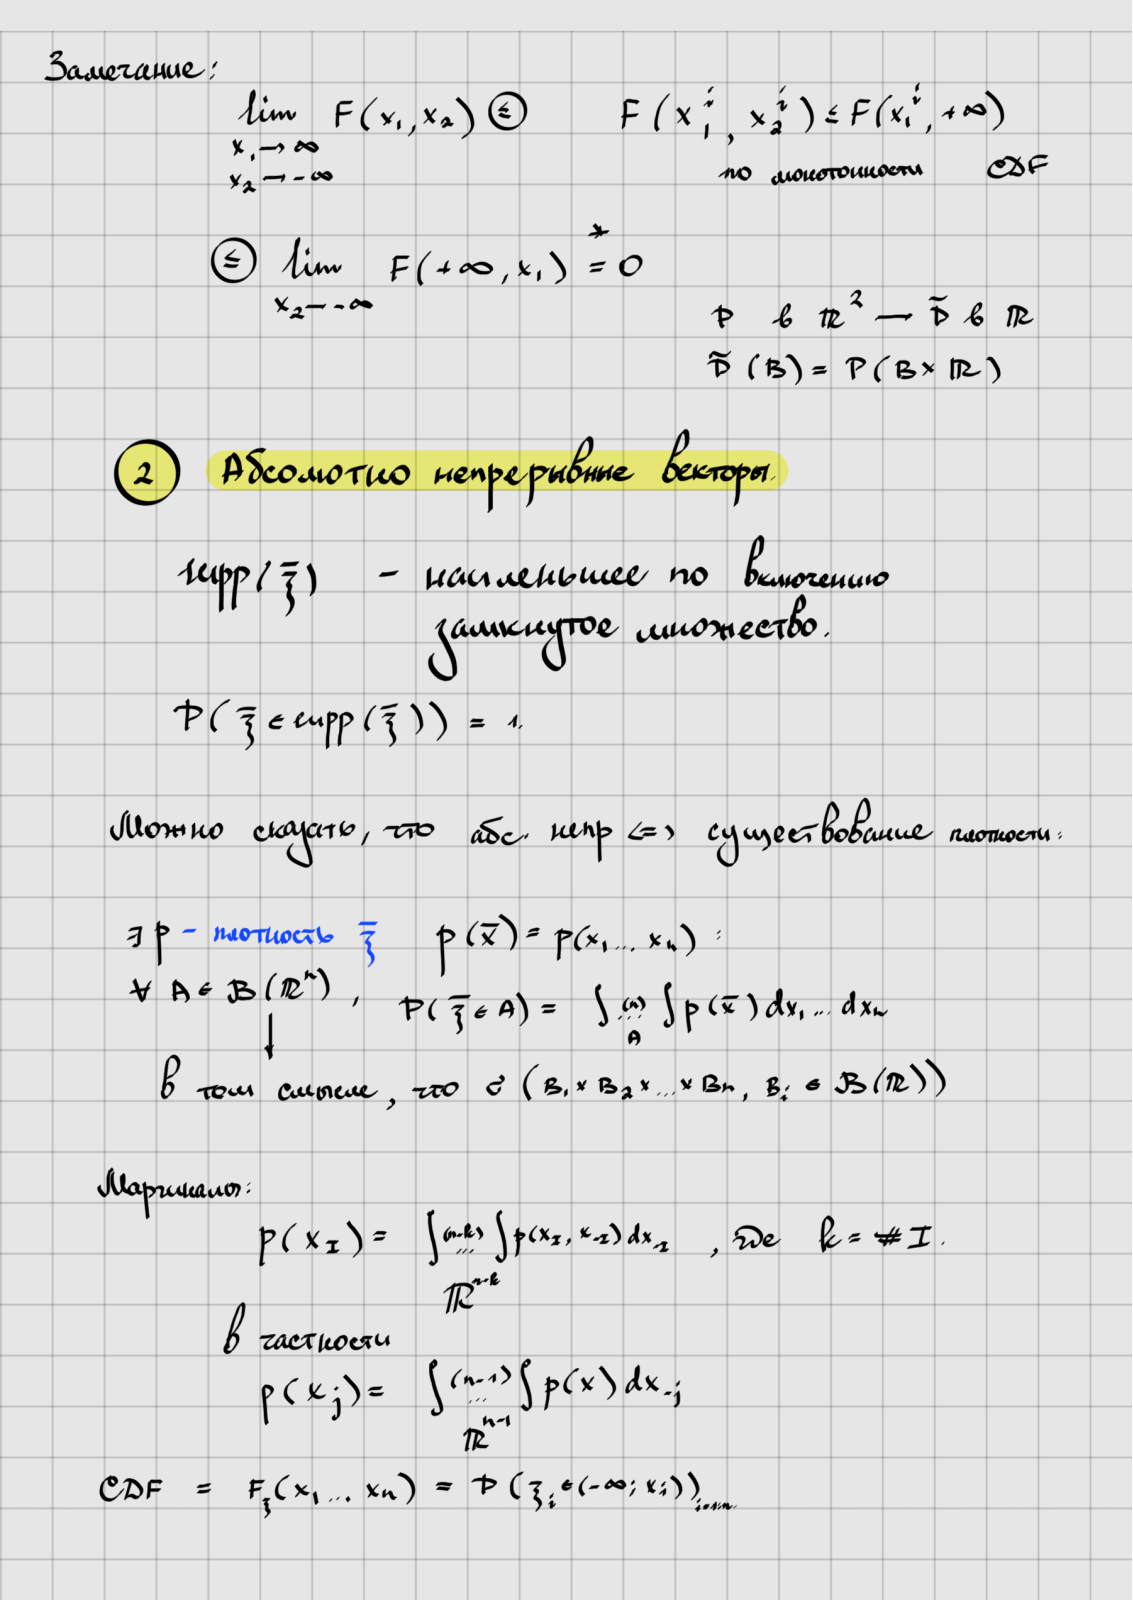 Замечание:
lim F(x₁, x₂) ≤ F(x₁ⁱ, x₂ⁱ) ≤ F(x₁ⁱ, +∞)
x₁ → ∞
x₂ → -∞ по монотонности CDF
≤ lim F(+∞, x₁) =* 0
x₂ → -∞
P в ℝ² — P̃ в ℝ
P̃(B) = P(B × ℝ)
2 Абсолютно непрерывные векторы.
supp(ξ̄) - наименьшее по включению
замкнутое множество.
P(ξ̄ ∈ supp(ξ̄)) = 1.
Можно сказать, что абс. непр <=> существование плотности:
∃ p - плотность ξ̄ p(x̄) = p(x₁...xₙ) :
∀ A ∈ B(ℝⁿ), P(ξ̄ ∈ A) = ∫ ⋯(n) ∫ p(x̄) dx₁...dxₙ
A
↓
в том смысле, что σ(B₁ × B₂ × ... × Bn, Bᵢ ∈ B(ℝ))
Маргиналы:
p(x_I) = ∫ ⋯(n-k) ∫ p(x_I, x_-I) dx_-I , где k = #I.
ℝⁿ⁻ᵏ
В частности
p(xⱼ) = ∫ ⋯(n-1) ∫ p(x) dx_-j
ℝⁿ⁻¹
CDF = F_ξ(x₁...xₙ) = P(ξᵢ ∈ (-∞; xᵢ))